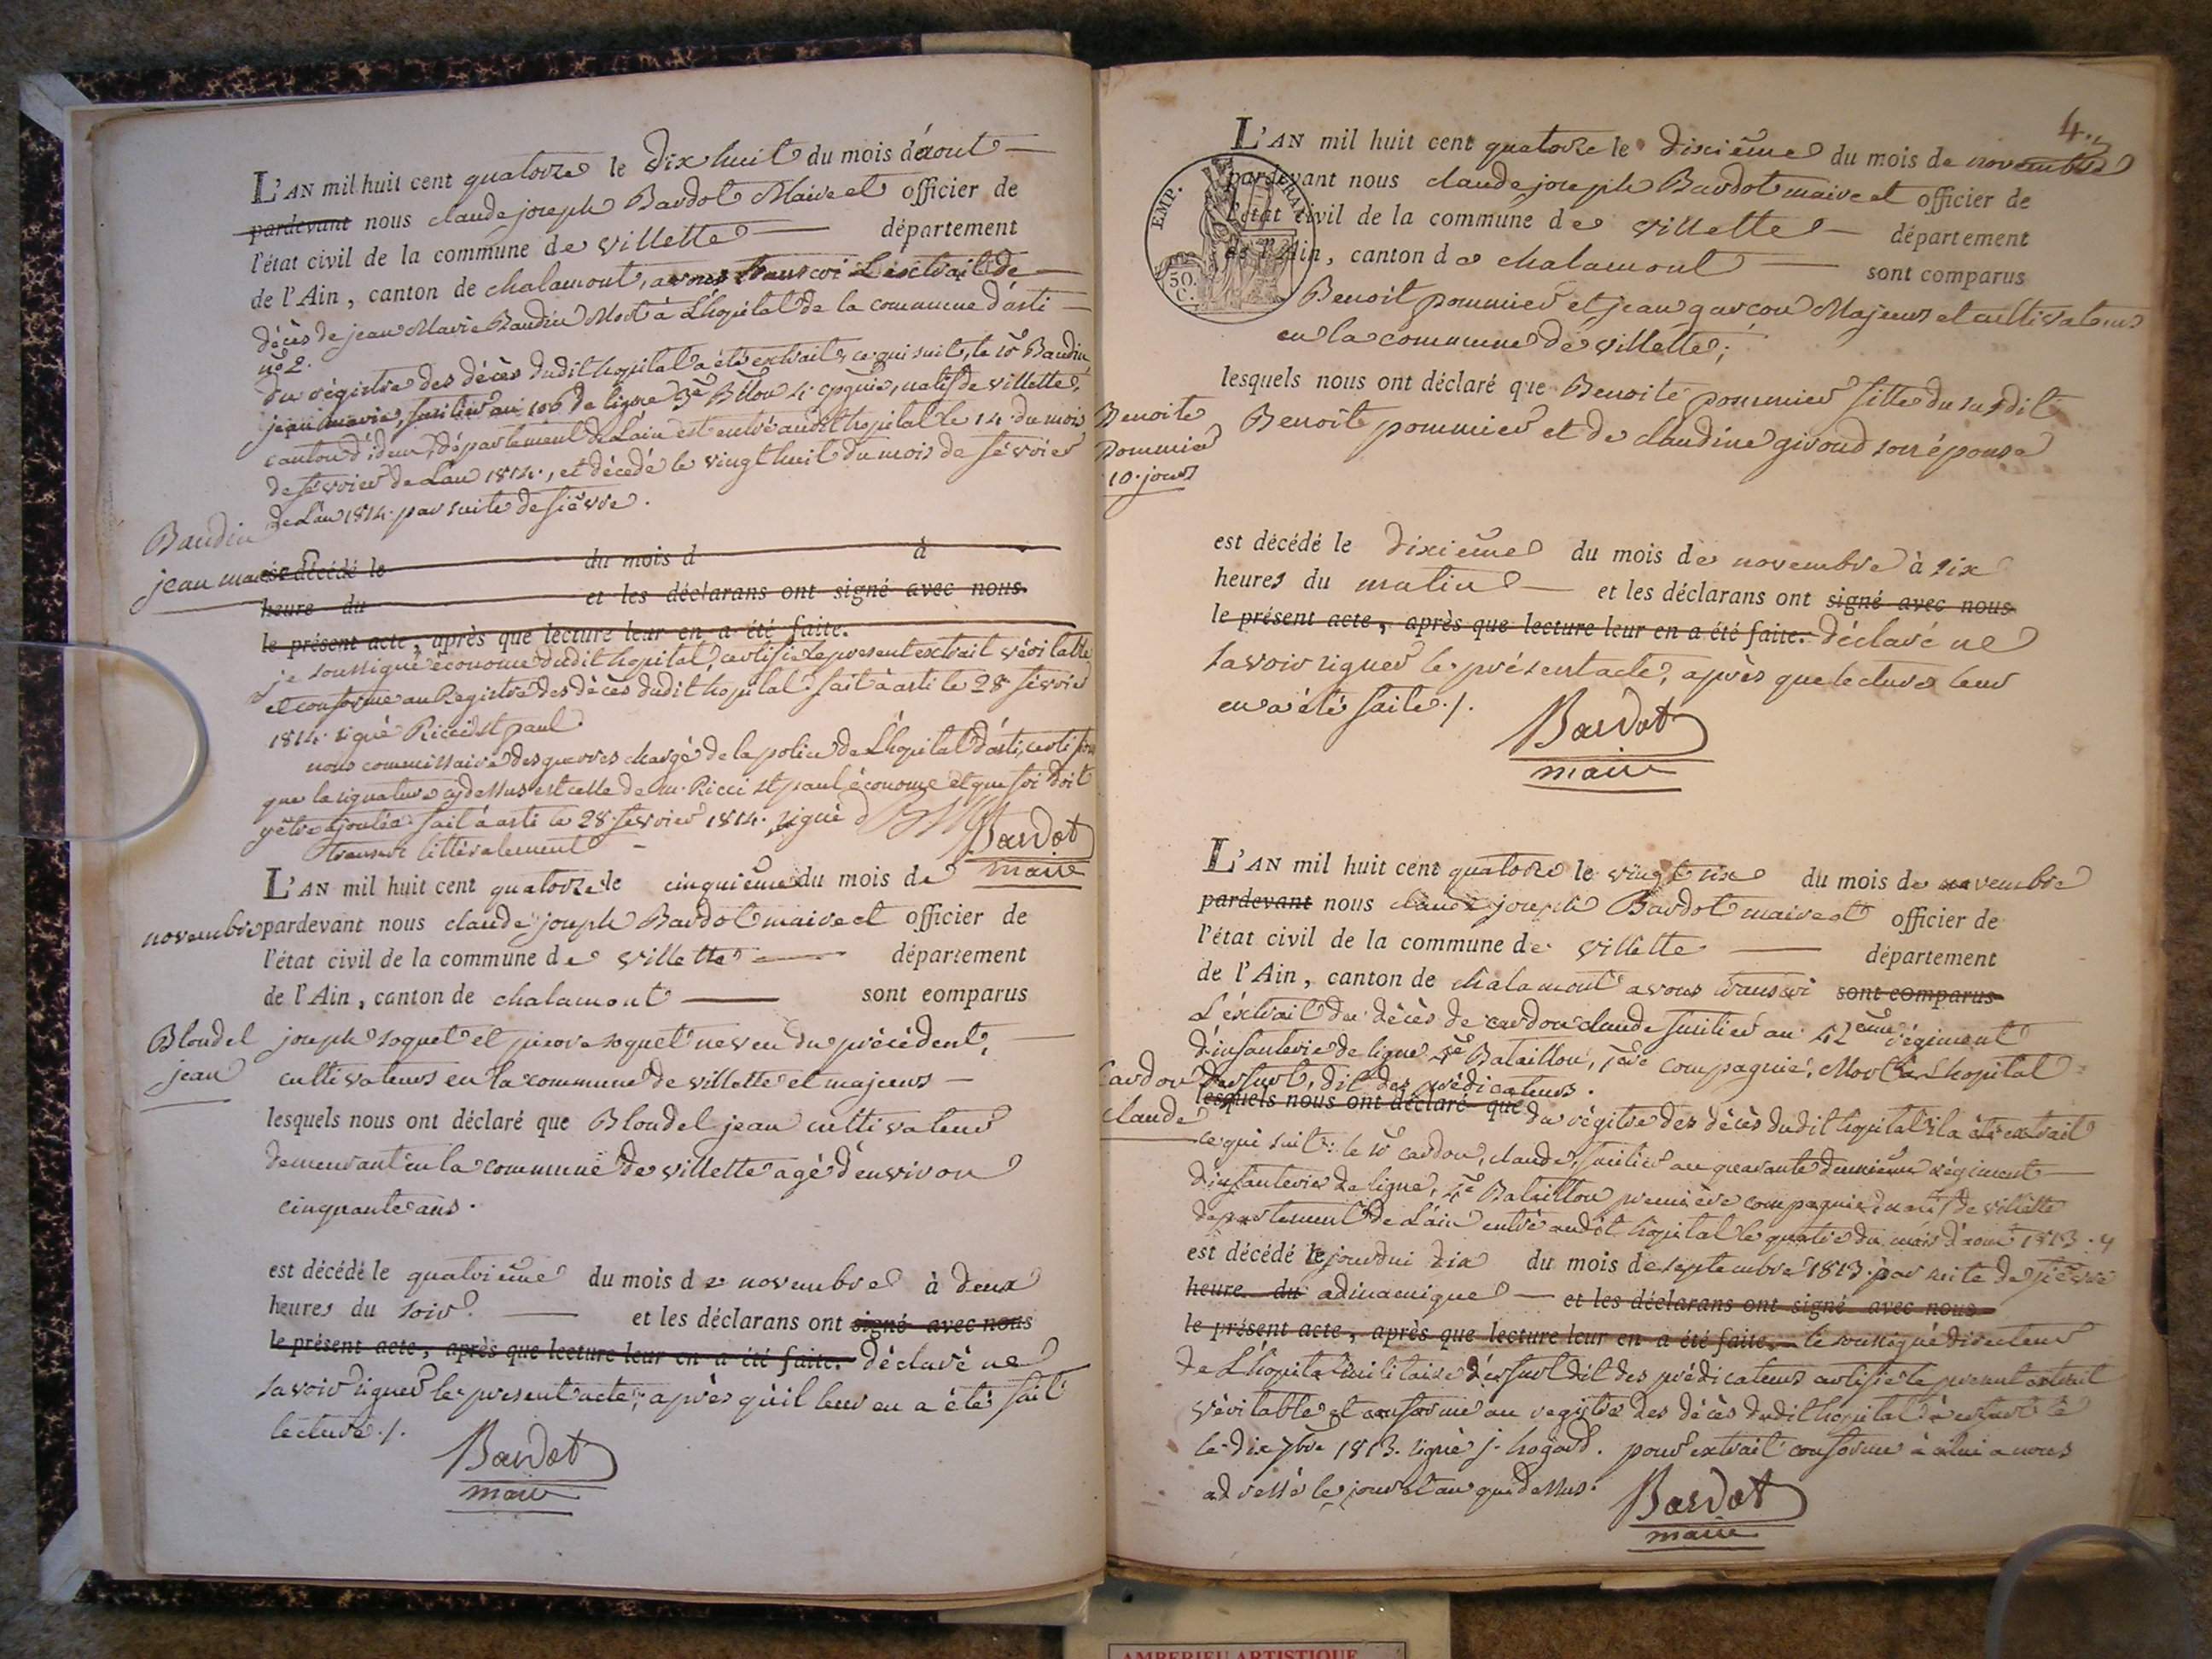 L'AN mil huit cent quatorze le dix huit du mois d'aout
pardevant nous claude joseph Bardot Maire et officier de
l'état civil de la commune de villette département
de l'Ain, canton de chalamont, avons transcri L'extrait de
décès de jean Marie Baudin Mort à L'hopital de la commune d'asti
n° 2.
du régistre des décès dudit hopital a été extrait ce qui suit, le sr Baudin
jean marie, fusilier au 106 de ligne 3e Btlon 4e cpgnie, natif de villette,
canton d'idem, département de Lain est entré audit hopital le 14 du mois
de février de Lan 1814, et décedé le vingt huit du mois de février
de Lan 1814. par suite de fièvre.
Baudin
jean marie
est décédé le du mois d à
heure du et les déclarans ont signé avec nous
le présent acte, après que lecture leur en a été faite.
je soussigné économe dudit hopital, certifie le present extrait véritable
et conforme au Registre des décès dudit hopital. fait à asti le 28 février
1814. signé Ricci st paul.
nous commissaire des guerres chargé de la police de L'hopital d'asti, certifions
que la signature cydessus est celle de m. Ricci st paul économe et que foi doit
y être ajoutée. fait à asti le 28 fevrier 1814. signé
transcrit littéralement
Bardot
maire
L'AN mil huit cent quatorze le cinquième du mois de
novembre pardevant nous claude joseph Bardot maire et officier de
l'état civil de la commune de villette département
de l'Ain, canton de chalamont sont comparus
Blondel
jean
joseph soquet et pierre soquet neveu du précédent,
cultivateurs en la commune de villette et majeurs
lesquels nous ont déclaré que Blondel jean cultivateur
demeurant en la commune de villette agé d'environ
cinquante ans.
est décédé le quatrième du mois de novembre à deux
heures du soir. et les déclarans ont signé avec nous
le présent acte, après que lecture leur en a été faite. déclaré ne
savoir signer le present acte, après qu'il leur en a été fait
lecture./.
Bardot
maire
4.
L'AN mil huit cent quatorze le dixième du mois de novembre
pardevant nous claude joseph Bardot maire et officier de
l'état civil de la commune de villette département
de l'Ain, canton de chalamont sont comparus
EMP.
50.
C.
Benoit pommier et jean garçon Majeurs et cultivateurs
en la commune de villette;
lesquels nous ont déclaré que Benoite pommier fille du susdit
Benoite
Pommier
10. jours
Benoit pommier et de claudine giroud son épouse
est décédé le dixième du mois de novembre à six
heures du matin et les déclarans ont signé avec nous
le présent acte, après que lecture leur en a été faite. déclaré ne
savoir signer le présent acte, après que lecture leur
en a été faite./.
Bardot
maire
L'AN mil huit cent quatorze le vingt six du mois de novembre
pardevant nous claude joseph Bardot maire et officier de
l'état civil de la commune de villette département
de l'Ain, canton de chalamont avons transcri sont comparus
L'éxtrait du décès de cardon claude fusilier au 42eme régiment
d'infanterie de ligne 4e Bataillon, 1ere compagnie, Mort à L'hopital
Cardon
claude
d'erfurt, dit des prédicateurs.
lesquels nous ont déclaré que du régitre des décès dudit hopital il a été extrait
ce qui suit: le sr cardon, claude, fusilier au quarante deuxième régiment
d'infanterie de ligne, 4e Bataillon première compagnie, natif de villette
departement de L'ain entré audit hopital le quatre du mois d'aout 1813. y
est décédé le jourdui dix du mois de septembre 1813. par suite de fièvre
heure du adinamique et les déclarans ont signé avec nous
le présent acte, après que lecture leur en a été faite. le soussigné directeur
de L'hopital militaire d'erfurt dit des prédicateurs certifie le présent extrait
véritable et conforme au registre des décès dudit hopital à erfurt le
le dix 7bre 1813. signé j. hogard. pour extrait conforme à celui a nous
adressé le jour et an que dessus.
Bardot
maire
AMBERIEU ARTISTIQUE